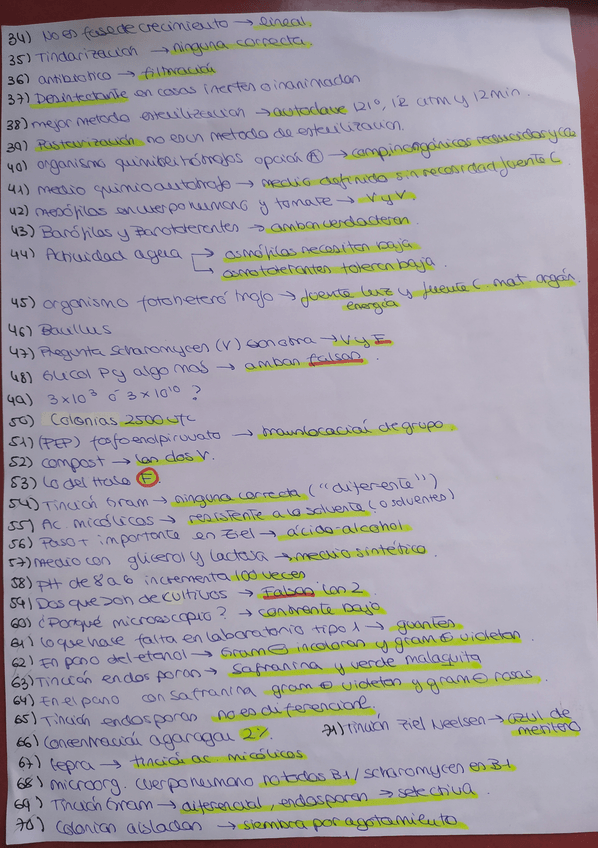 34) No es fase de crecimiento → lineal.
35) Tindarización → ninguna correcta.
36) antibiótico → filtración
37) Desinfectante en cosas inertes o inanimadas
38) mejor metodo esterilización → autoclave 121º, 1'2 atm y 12 min.
39) Pasteurización no es un metodo de esterilización.
40) organismo quimiolitótrofos opción A → comp. inorgánicos
41) medio quimioautótrofo → medio definido sin necesidad fuente C.
42) mesófilas en cuerpo humano y tomate → V y V.
43) Barófilas y Barotolerantes → ambas verdaderas.
44) Actividad agua → osmófilas necesitan baja
↳ osmotolerantes toleran baja.
45) organismo fotoheterótrofo → fuente luz y fuente C. mat. orgán.
energía
46) Bacillus
47) Pregunta scharomyces (V) → V y F
48) Glucal P y algo más → ambas falsas.
49) 3x10³ ó 3x10¹⁰ ?
50) Colonias 2500 ufc
51) (PEP) fosfoenolpiruvato → translocación de grupo.
52) compost → las dos V.
53) Lo del F.
54) Tinción Gram → ninguna correcta (“diferente”)
55) Ac. micólicos → resistente a la solvente (o solventes)
56) Paso + importante en Ziel → ácido-alcohol
57) medio con glicerol y lactosa → medio sintético.
58) PH de 8 a 6 incrementa 100 veces
59) Dos que son de cultivos → Falsas las 2
60) ¿Porqué microscopio? → contraste bajo
61) lo que hace falta en laboratorio tipo 1 → guantes
62) En paso del etanol → Gram⊖ incoloras y gram⊕ violetas.
63) Tinción endosporas → Safranina y verde malaquita
64) En el paso con safranina gram⊕ violetas y gram⊖ rosas.
65) Tinción endosporas no es diferencial.
66) Concentración agaragar 2%
71) Tinción Ziel Neelsen → azul de metileno
67) lepra → tinción ac. micólicos
68) microorg. cuerpo humano no todas B1 / scharomyces es B1
69) Tinción Gram → diferencial, endosporas → selectiva.
70) Colonias aisladas → siembra por agotamiento